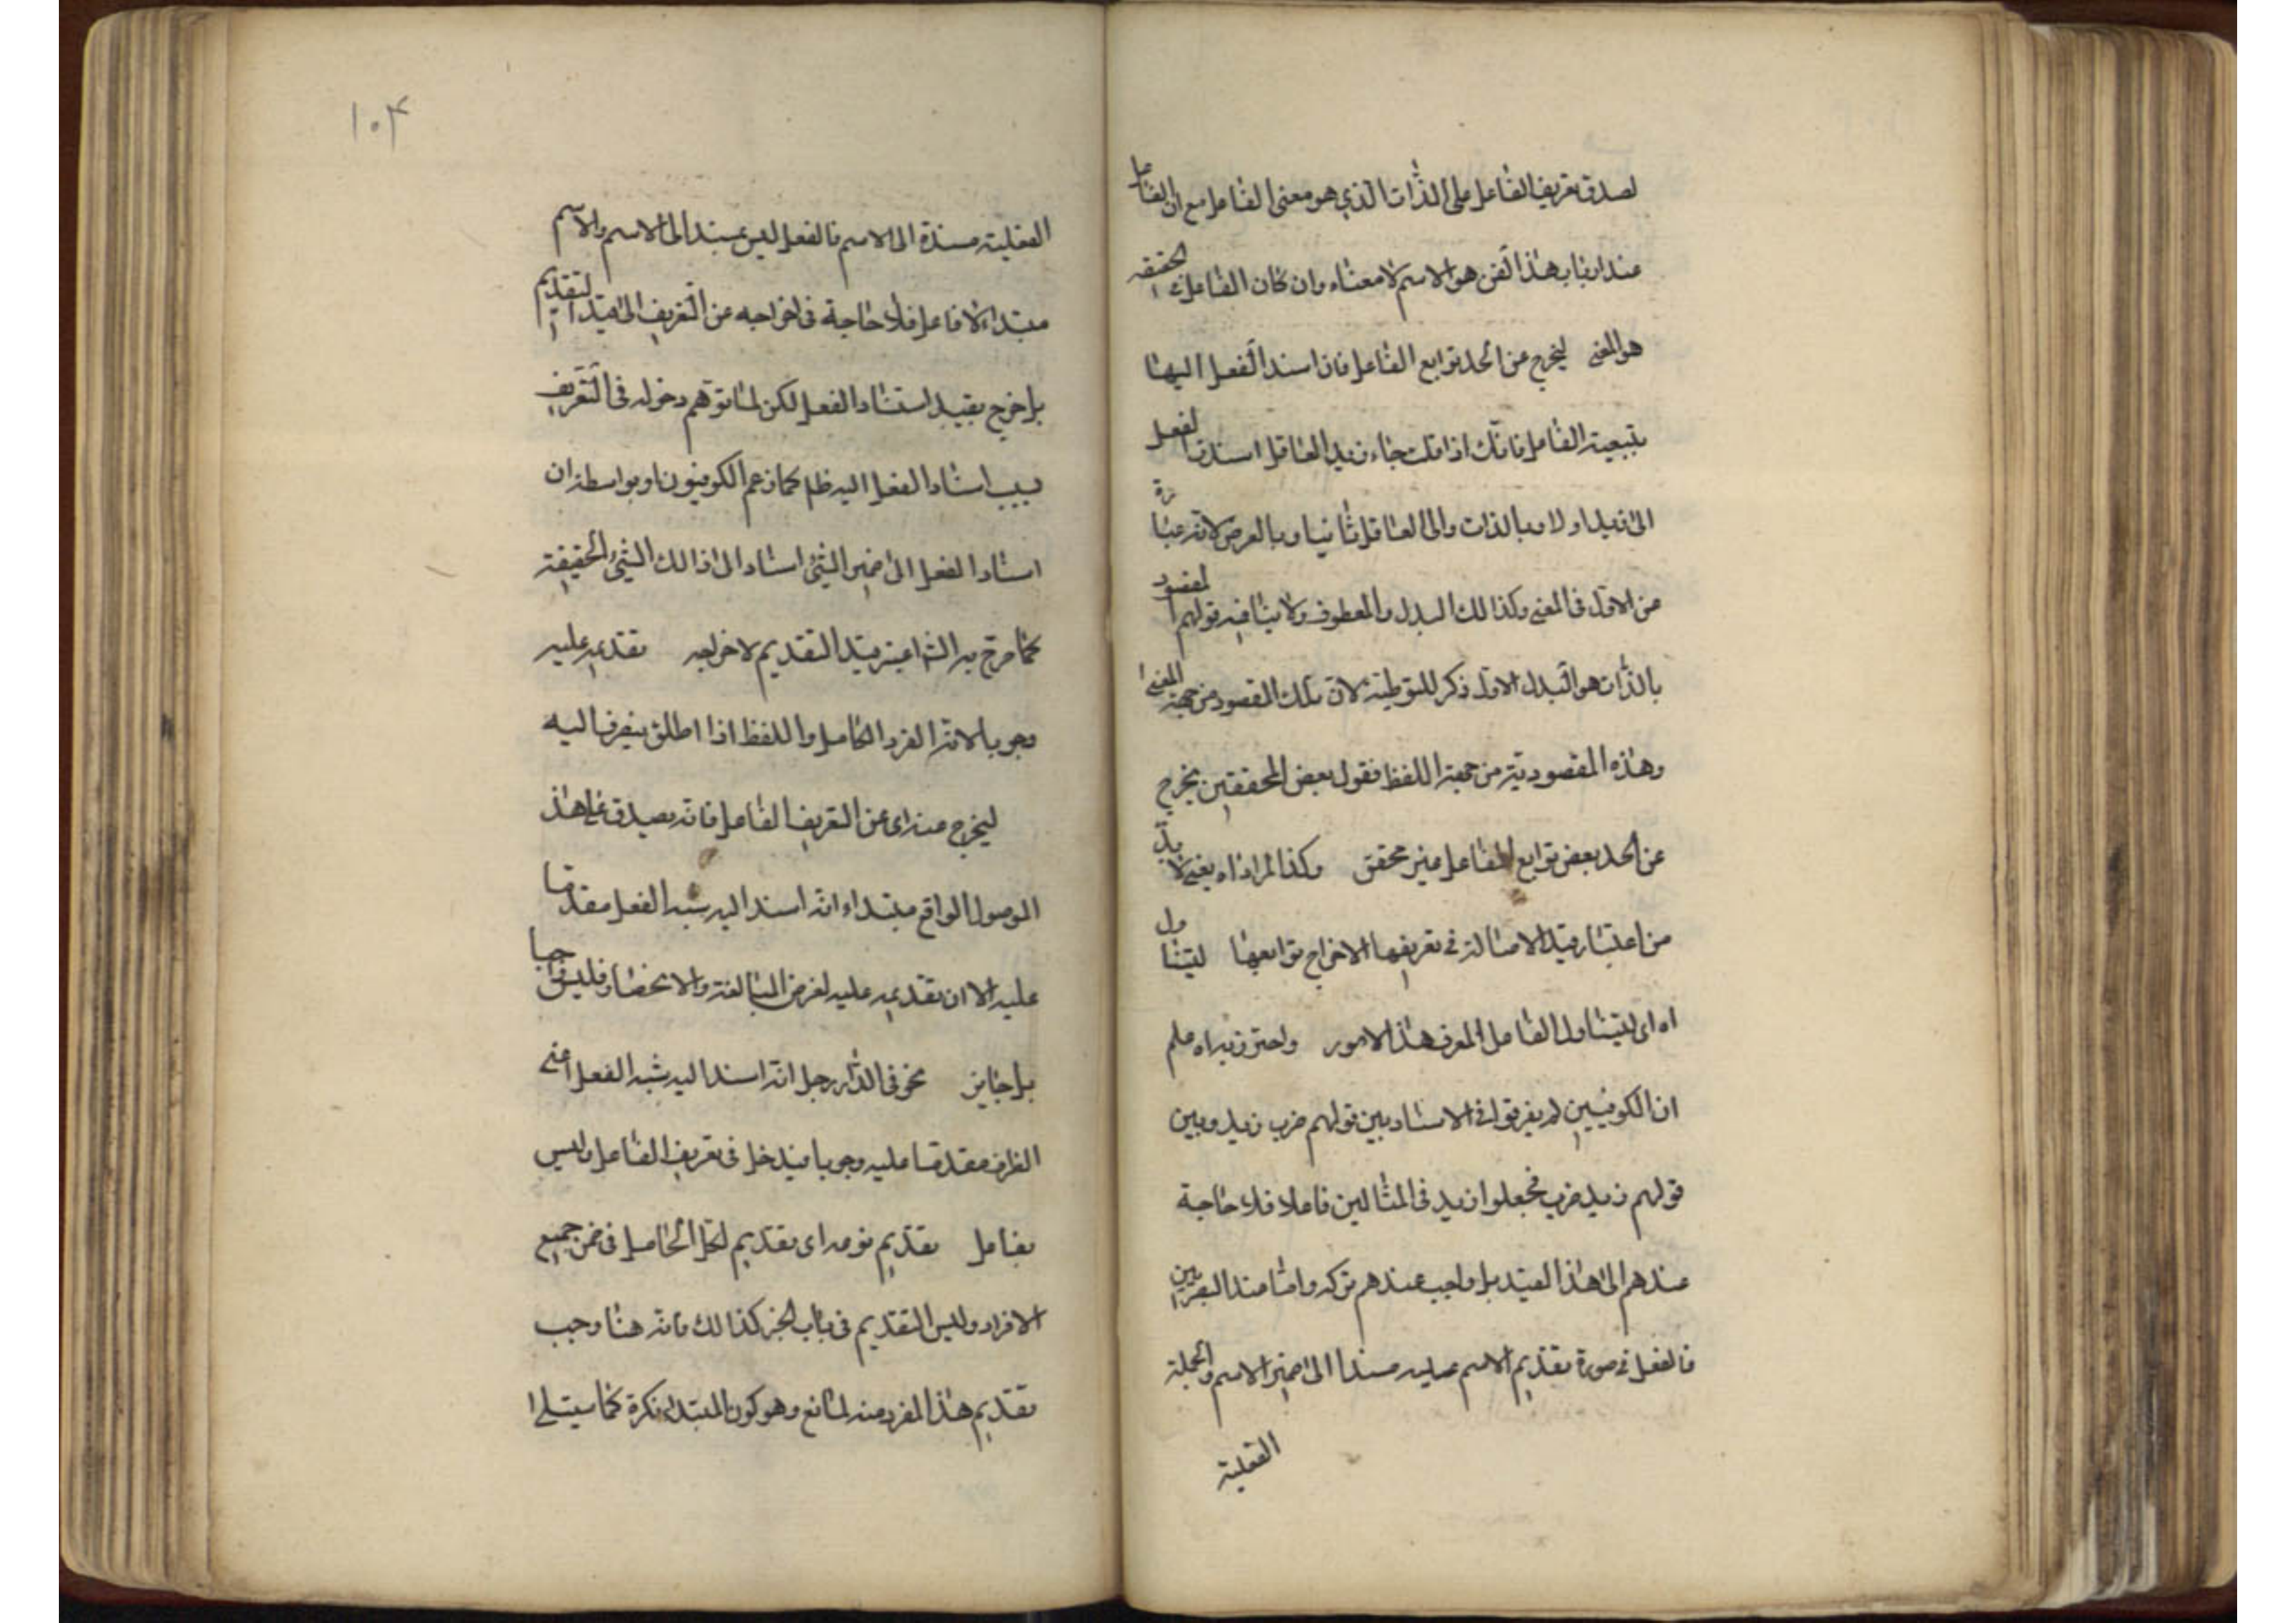 لصدق تعريف الفاعل على الذات الذي هو معنى الفاعل مع ان الفاعل
عند ارباب هذا الفن هو الاسم لا معناه وان كان الفاعل الحقيقة
هو المعنى ليخرج عن الحد توابع الفاعل فان اسند الفعل اليها
بتبعية الفاعل فانك اذا قلت جاء زيد العاقل اسندت الفعل
الى زيد اولا وبالذات والى العاقل ثانيا وبالعرض لانه عبارة
من الاول فى المعنى وكذالك البدل والمعطوف ولا ينافيه قولهم المقصود
بالذات هو البدل الاول ذكر للتوطية لان تلك المقصود من جهة المعنى
وهذه المقصودية من جهة اللفظ فقول بعض المحققين يخرج
عن الحد بعض توابع الفاعل غير محقق وكذا المراد اه يعنى لا بد
من اعتبار قيد الاصالة فى تعريفها الاخراج توابعها ليتناول
اه اى ليتناول الفاعل المعرف هذا الامور واحترز به اه علم
ان الكوفيين لم يفرقوا فى الاسناد بين قولهم ضرب زيد وبين
قولهم زيد ضرب فجعلوا زيد فى المثالين فاعلا فلا حاجة
عندهم الى هذا القيد بل واجب عندهم تركه واما عند البصريين
فالفعل فى صورة تقديم الاسم عليه مسندا الى ضمير الاسم والجملة
الفعلية
١٠٤
الفعلية مسندة الى الاسم فالفعل ليس بمسند الى الاسم والاسم
مبتداء لا فاعل فلا حاجة فى اخراجه عن التعريف الى قيد التقديم
بل اخرج بقيد استناد الفعل لكن لما توهم دخوله فى التعريف
بسبب اسناد الفعل اليه ظ كما زعم الكوفيون او بواسطة ان
اسناد الفعل الى ضمير الشئ اسناد الى ذالك الشئ الحقيقة
كما صرح به الشا قيد التقديم لاخراجه تقديمه عليه
وجوبا لانه الفرد الكامل واللفظ اذا اطلق ينصرف اليه
ليخرج عنه اى عن التعريف الفاعل فانه يصدق على هذ
الموصول الواقع مبتداء انه اسند اليه شبه الفعل مقدما
عليه الا ان تقديمه عليه لغرض المبالغة والانحصار فليس واجبا
بل جايز نحو فى الدار رجل انه اسند اليه شبه الفعل اعنى
الظرف مقدما عليه وجوبا فيدخل فى تعريف الفاعل وليس
بفاعل تقديم نوعه اى تقديم لكل الحاصل فى ضمن جميع
الافراد وليس التقديم فى باب الخبر كذالك فانه هنا وجب
تقديم هذا المفرد منه لمانع وهو كون المبتداء نكرة كما سيتلى